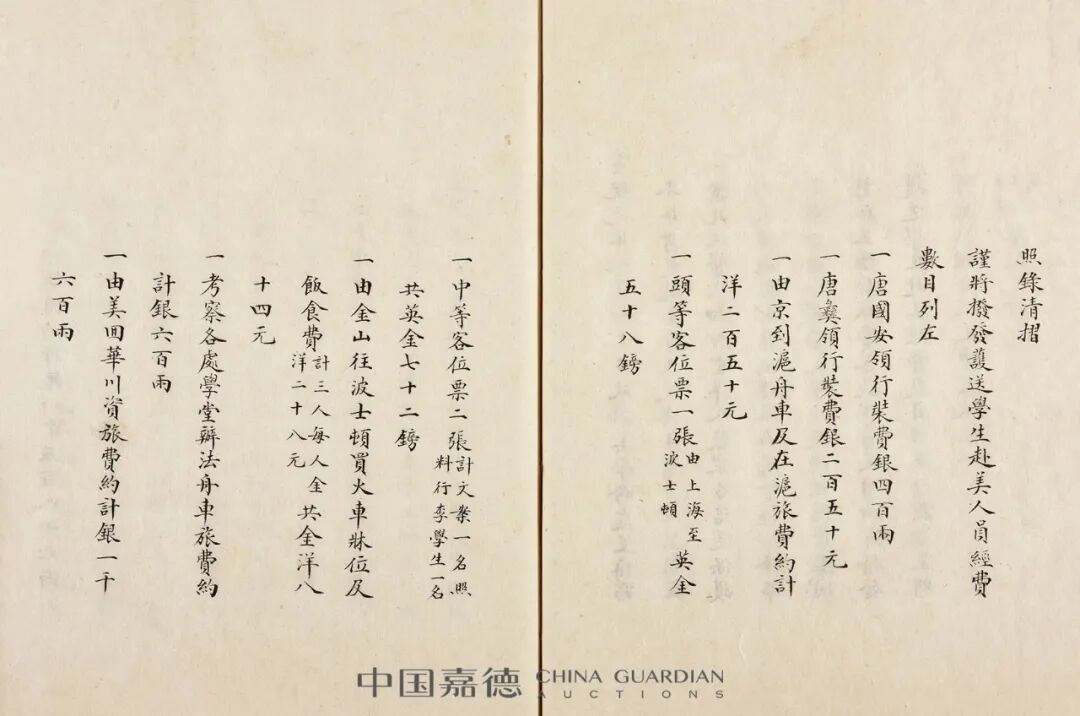 照錄清摺
謹將撥發護送學生赴美人員經費
數目列左
一唐國安領行裝費銀四百兩
一唐彝領行裝費銀二百五十元
一由京到滬舟車及在滬旅費約計
洋二百五十元
一頭等客位票一張由上海至波士頓英金
五十八鎊
一中等客位票二張計文案一名照料行李學生一名
共英金七十二鎊
一由金山往波士頓買火車牀位及
飯食費計三人每人金洋二十八元共金洋八
十四元
一考察各處學堂辦法舟車旅費約
計銀六百兩
一由美回華川資旅費約計銀一千
六百兩
中国嘉德 CHINA GUARDIAN
AUCTIONS